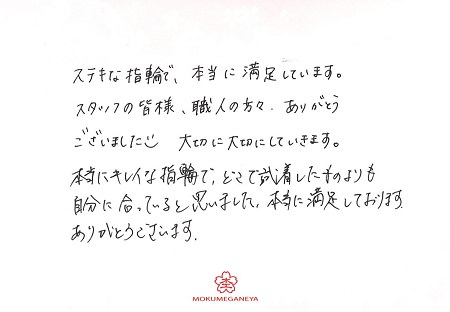 ステキな指輪で、本当に満足しています。
スタッフの皆様、職人の方々、ありがとう
ございました 大切に大切にしていきます。
本当にキレイな指輪で、どこで試着したものよりも
自分に合っていると思いました。本当に満足しております。
ありがとうございます。
MOKUMEGANEYA